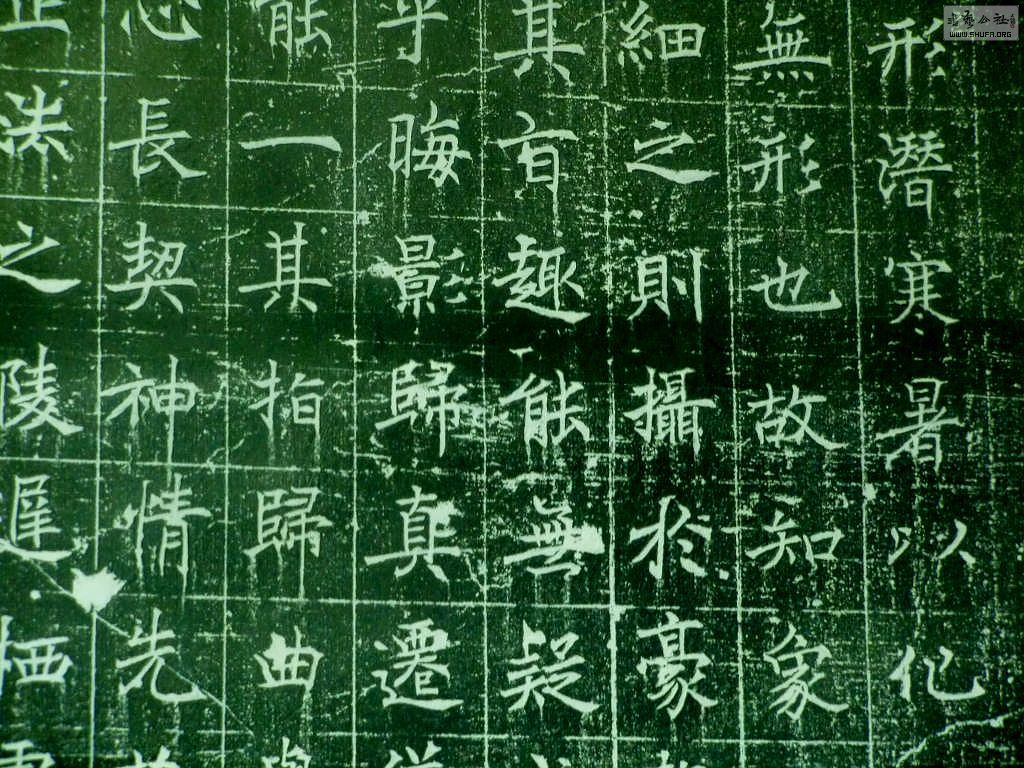 形潛寒暑以化
無形也故知象
細之則攝於豪
其旨趣能無疑
乎晦影歸真遷
能一其指歸曲
心長契神情先
法之陵遲栖
書藝公社
WWW.SHUFA.ORG